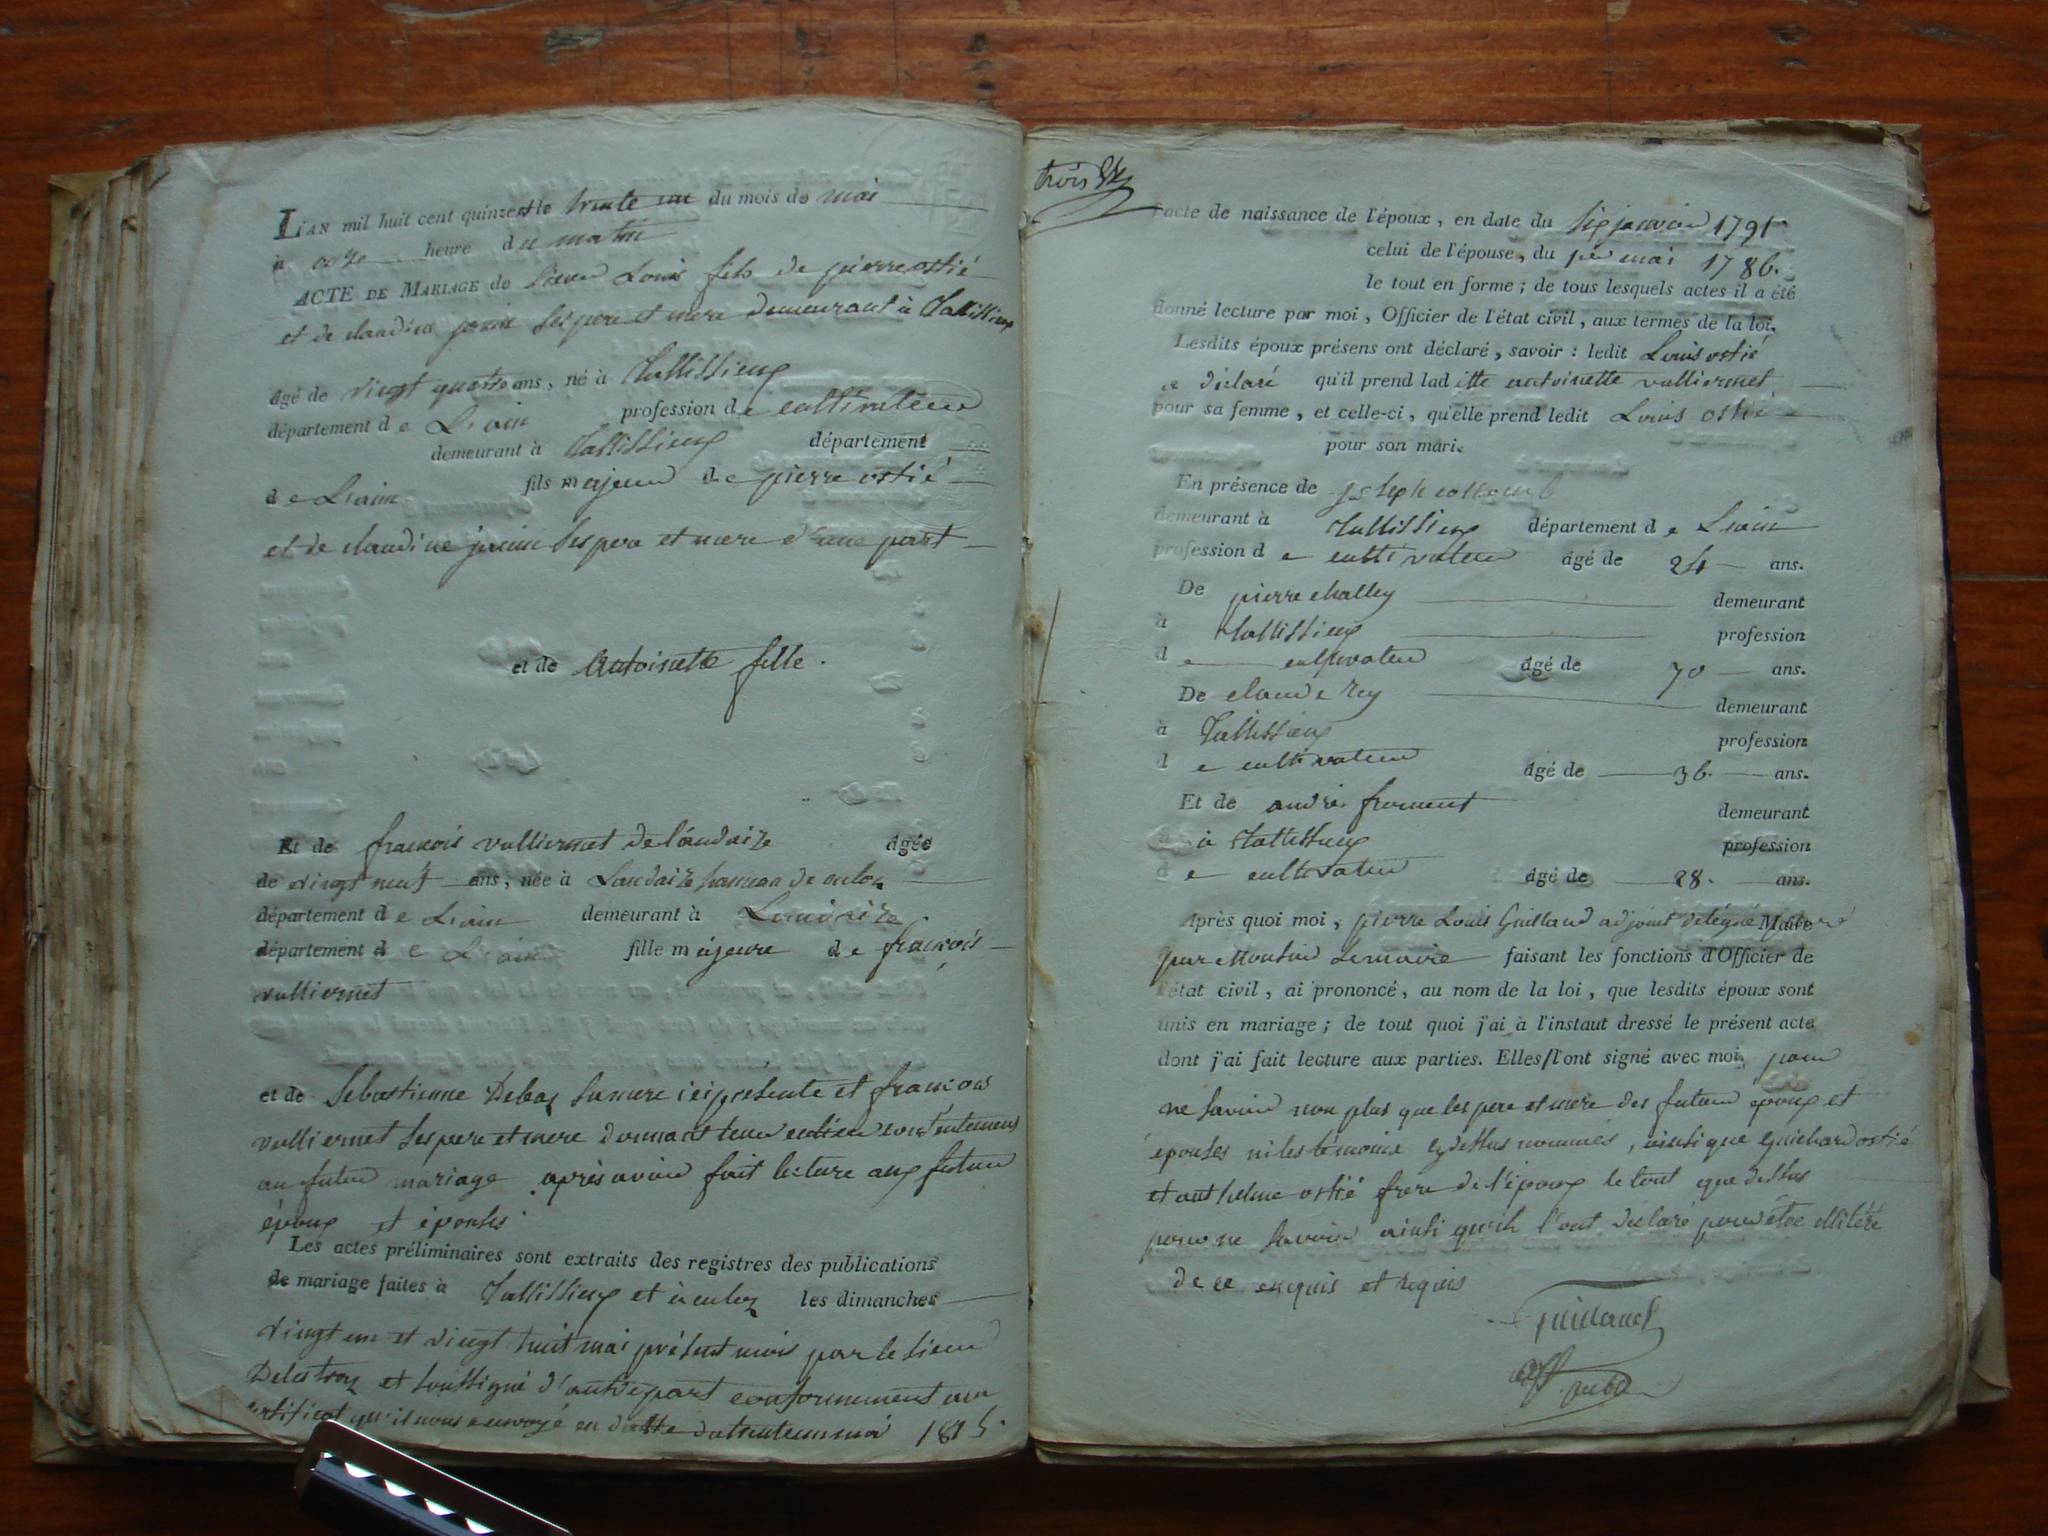 L'AN mil huit cent quinze et le trente un du mois de mai
à onze heure du matin
ACTE DE MARIAGE de Sieur Louis fils de pierre ostié
et de claudine janin ses pere et mere demeurant à Tallissieux
âgé de vingt quatre ans, né à Tallissieux
département de L'ain profession de cultivateur
demeurant à Tallissieux département
de L'ain fils majeur de pierre ostié
et de claudine janin ses pere et mere d'une part
et de Antoinette fille.
Et de francois vulliermet de Landaize âgée
de vingt neuf ans, née à Landaize hameau de culoz
département de L'ain demeurant à Landaize
département de L'ain fille majeure de françois
vulliermet
et de Sebastienne Sa mere ici présente et francois
vulliermet ses pere et mere donnant leur entier contentement
au futur mariage après avoir fait lecture aux futur
époux et épouses
Les actes préliminaires sont extraits des registres des publications
de mariage faites à Tallissieux et à culoz les dimanches
vingt un et vingt huit mai présent mois par le sieur
et soussigné d'autre part conformement au
certificat qu'il nous a envoyé en datte du trente un mai 1815.
trois
l'acte de naissance de l'époux, en date du six janvier 1791
celui de l'épouse, du per mai 1786.
le tout en forme; de tous lesquels actes il a été
donné lecture par moi, Officier de l'état civil, aux termes de la loi.
Lesdits époux présens ont déclaré, savoir: ledit Louis ostié
a déclaré qu'il prend laditte antoinette vulliermet
pour sa femme, et celle-ci, qu'elle prend ledit Louis ostié
pour son mari.
En présence de joseph collomb
demeurant à Tallissieux département de L'ain
profession de cultivateur âgé de 24 ans.
De pierre challey demeurant
à Tallissieux profession
de cultivateur âgé de 70 ans.
De claude rey demeurant
à Tallissieux profession
de cultivateur âgé de 36. ans.
Et de andré froment demeurant
à à Tallissieux profession
de cultivateur âgé de 28. ans.
Après quoi moi, pierre Louis Guilland adjoint delégué Maire
par Monsieur Lemaire faisant les fonctions d'Officier de
l'état civil, ai prononcé, au nom de la loi, que lesdits époux sont
unis en mariage; de tout quoi j'ai à l'instant dressé le présent acte
dont j'ai fait lecture aux parties. Elles l'ont signé avec moi, pour
ne savoir non plus que les pere et mere des futur époux et
épouses ni les témoins cy dessus nommés, ainsi que Guichard ostié
et anthelme ostié frere de l'époux le tout que dessus
pour ne savoir ainsi qu'ils l'ont declaré pour être illiteré
de ce enquis et requis
Guilland